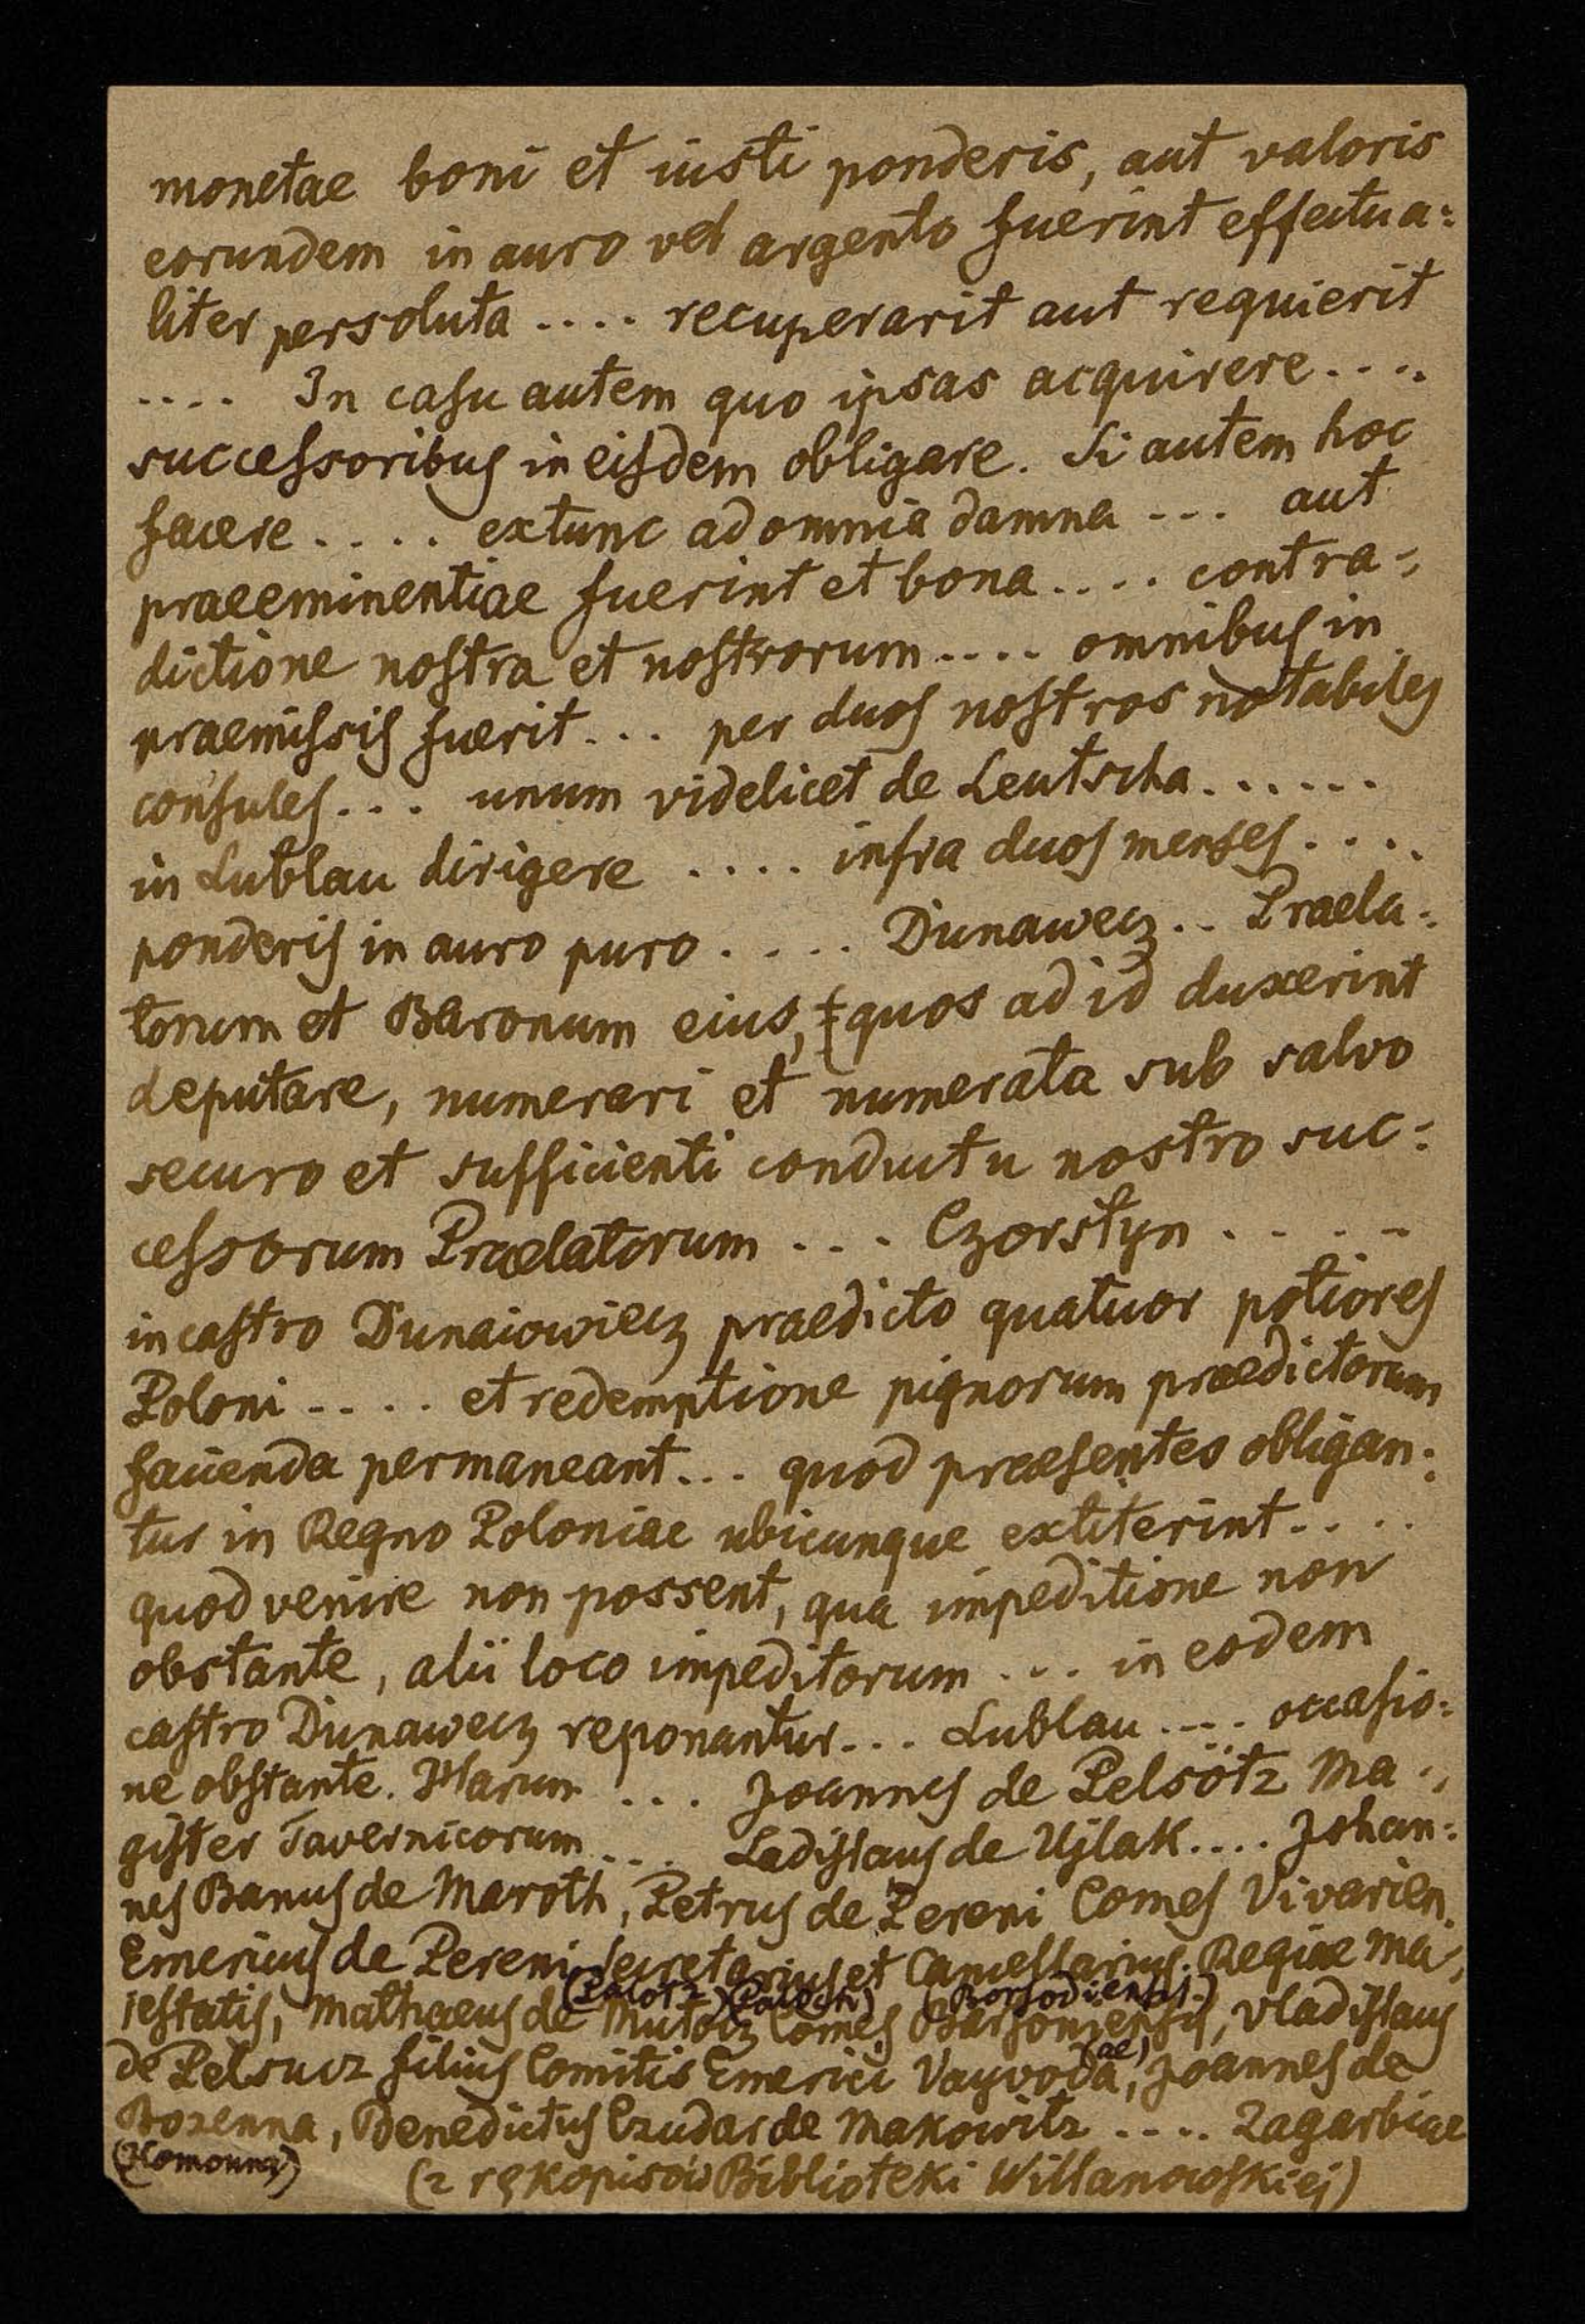 monetae boni et iusti ponderis, aut valoris
eorundem in auro vel argento fuerint effectua=
liter persoluta .... recuperarit aut requierit
.... In casu autem quo ipsas acquirere ....
successoribus in eisdem obligare. Si autem hoc
facere .... extunc ad omnia damna --- aut
praeeminentiae fuerint et bona .... contra=
dictione nostra et nostrorum .... omnibus in
praemissis fuerit ... per duos nostros notabiles
consules ... unum videlicet de Leutscha ......
in Lublau dirigere .... infra duos menses ....
ponderis in auro puro .... Dunawecz .. Praela=
torum et Baronum eius, quos ad id duxerint
deputare, numerari et numerata sub salvo
securo et sufficienti conductu nostro suc=
cessorum Praelatorum ... Czorstyn ....
in castro Dunaiowiecz praedicto quatuor potiores
Poloni .... et redemptione pignorum praedictorum
facienda permaneant ... quod praesentes obligan=
tur in Regno Poloniae ubicunque extiterint ....
quod venire non possent, qua impeditione non
obstante, alii loco impeditorum ... in eodem
castro Dunawecz reponantur ... Lublau .... occasio=
ne obstante. Harum ... Joannes de Pelsötz Ma=
gister Tavernicorum .... Ladislaus de Ujlak .... Johan=
nes Banus de Maroth, Petrus de Pereni Comes Vivarien.
Emericus de Pereni Secretarius et Cancellarius Regiae Ma=
(Palotz) (Paloch) (Borsodiensis.)
iestatis, Mathaeus de Mutocz Comes Barsoniensis, Vladislaus
(ae)
de Pelsucz filius Comitis Emerici Vayvoda, Joannes de
Bozenna, Benedictus Czudar de Makowitz .... Zagarbiae
(Homonna) (z rękopisów Biblioteki Willanowskiej)